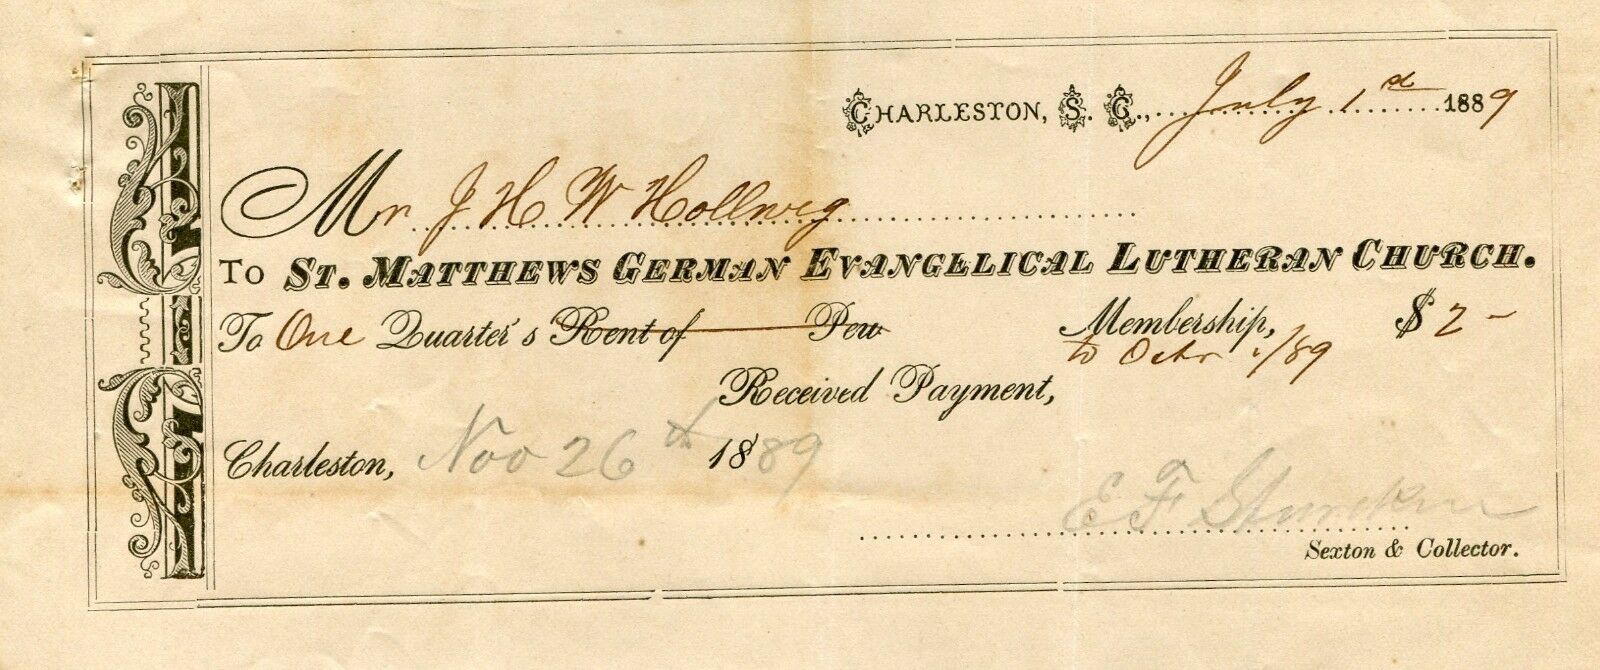 Charleston, S. C., July 1st 1889
Mr J H W Hollweg
To St. Matthews German Evangelical Lutheran Church.
To One Quarter's Rent of Pew Membership, $ 2 -
to Octr 1/89
Received Payment,
Charleston, Nov 26th 1889
E F
Sexton & Collector.